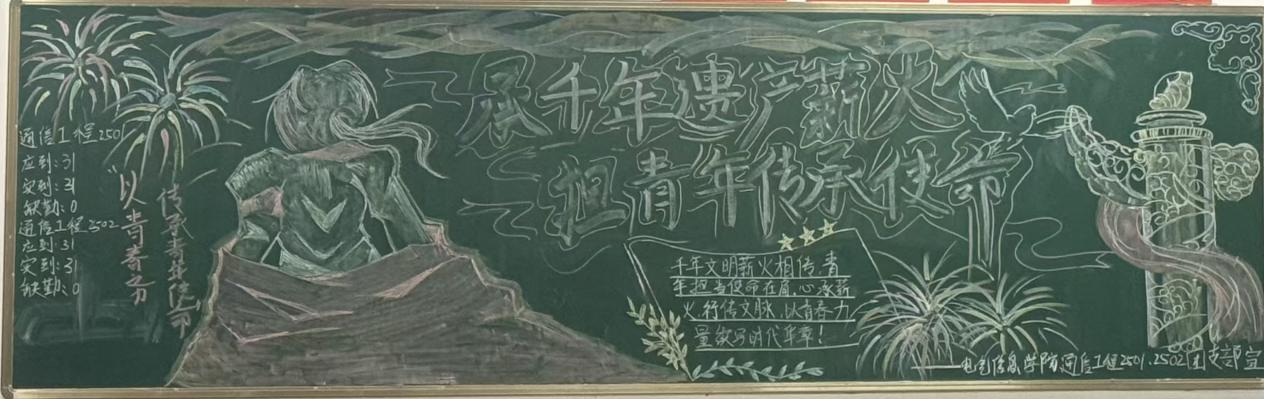 承千年遗产薪火
担青年传承使命
通信工程2501
应到:31
实到:31
缺勤:0
通信工程2502
应到:31
实到:31
缺勤:0
"以青春之力
传承青年使命"
千年文明薪火相传,青
年担当使命在肩,心承薪
火,行传文脉,以青春力
量谱写时代华章!
通信工程2501、2502团支部宣